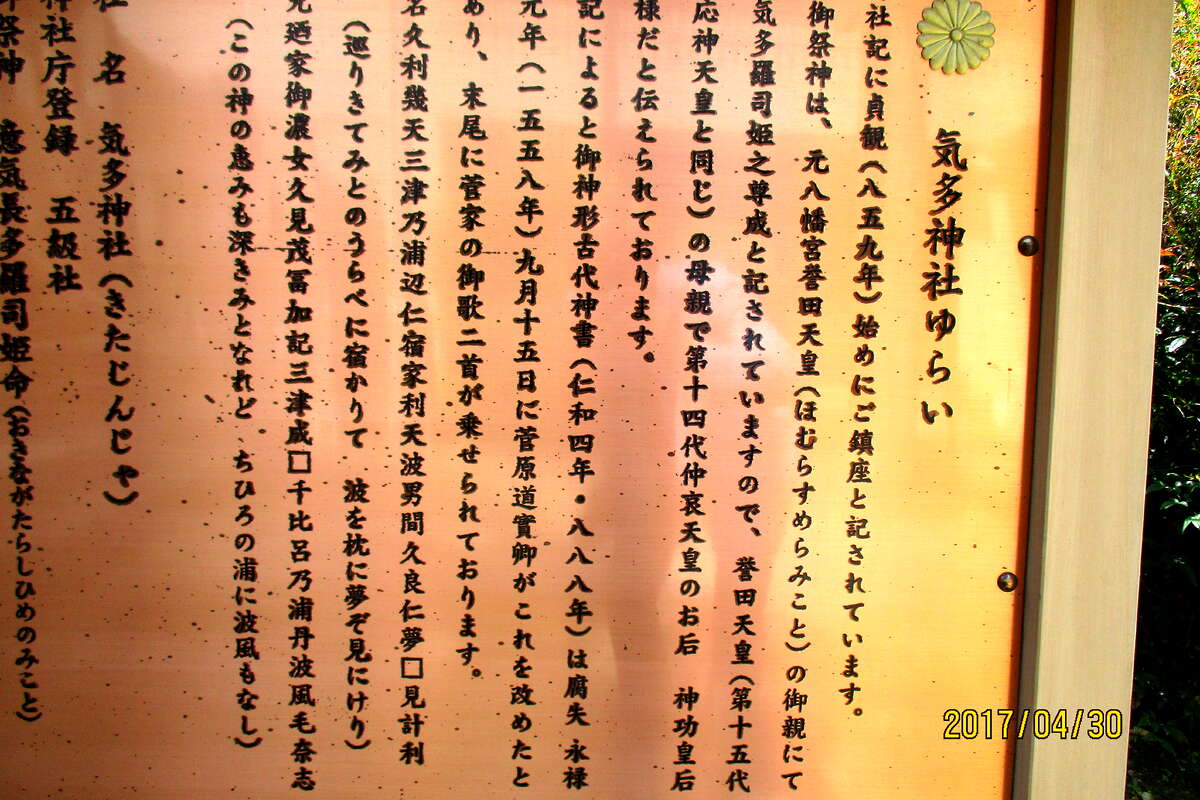 気多神社ゆらい
社記に貞観（八五九年）始めにご鎮座と記されています。
御祭神は、元八幡宮誉田天皇（ほむらすめらみこと）の御親にて
気多羅司姫之尊成と記されていますので、誉田天皇（第十五代
応神天皇と同じ）の母親で第十四代仲哀天皇のお后　神功皇后
様だと伝えられております。
記によると御神形古代神書（仁和四年・八八八年）は腐失　永禄
元年（一五五八年）九月十五日に菅原道實卿がこれを改めたと
あり、末尾に菅家の御歌二首が乗せられております。
名久利幾天三津乃浦辺仁宿家利天波男間久良仁夢□見計利
（巡りきてみとのうらべに宿かりて　波を枕に夢ぞ見にけり）
廼家御濃女久見茂冨加記三津成□千比呂乃浦丹波風毛奈志
（この神の恵みも深きみとなれど　ちひろの浦に波風もなし）
社　名　気多神社（きたじんじゃ）
神社庁登録　五級社
祭神　意気長多羅司姫命（おきながたらしひめのみこと）
2017/04/30